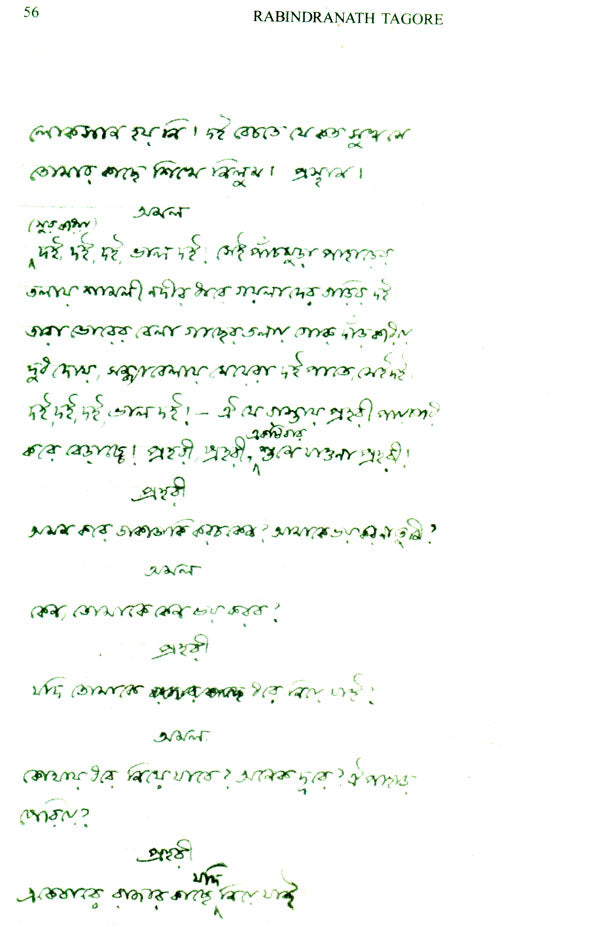 56
RABINDRANATH TAGORE
লোকসান হয়নি। দই বেচতে যে কত সুখ সে
তোমার কাছে শিখে নিলুম। প্রস্থান।
অমল
(সুর করিয়া)
দই, দই, দই, ভাল দই! সেই পাঁচমুড়া পাহাড়ের
তলায় শামলী নদীর ধারে গয়লাদের বাড়ির দই
তারা ভোরের বেলা গাছের তলায় গোরু দাঁড় করিয়ে
দুধ দোয়, সন্ধ্যাবেলায় মেয়েরা দই পাতে, সেই দই
দই, দই, দই, ভাল দই! — ঐ যে রাস্তায় প্রহরী পায়চারি
একটিবার
করে বেড়াচ্ছে! প্রহরী, প্রহরী, শুনে যাওনা প্রহরী!
প্রহরী
অমন করে ডাকাডাকি করচ কেন? আমাকে ভয় কর না তুমি?
অমল
কেন, তোমাকে কেন ভয় করব?
প্রহরী
যদি তোমাকে ধরে নিয়ে যাই?
অমল
কোথায় ধরে নিয়ে যাবে? অনেক দূরে? ঐ পাহাড়
পেরিয়ে?
প্রহরী
যদি
একেবারে রাজার কাছে নিয়ে যাই